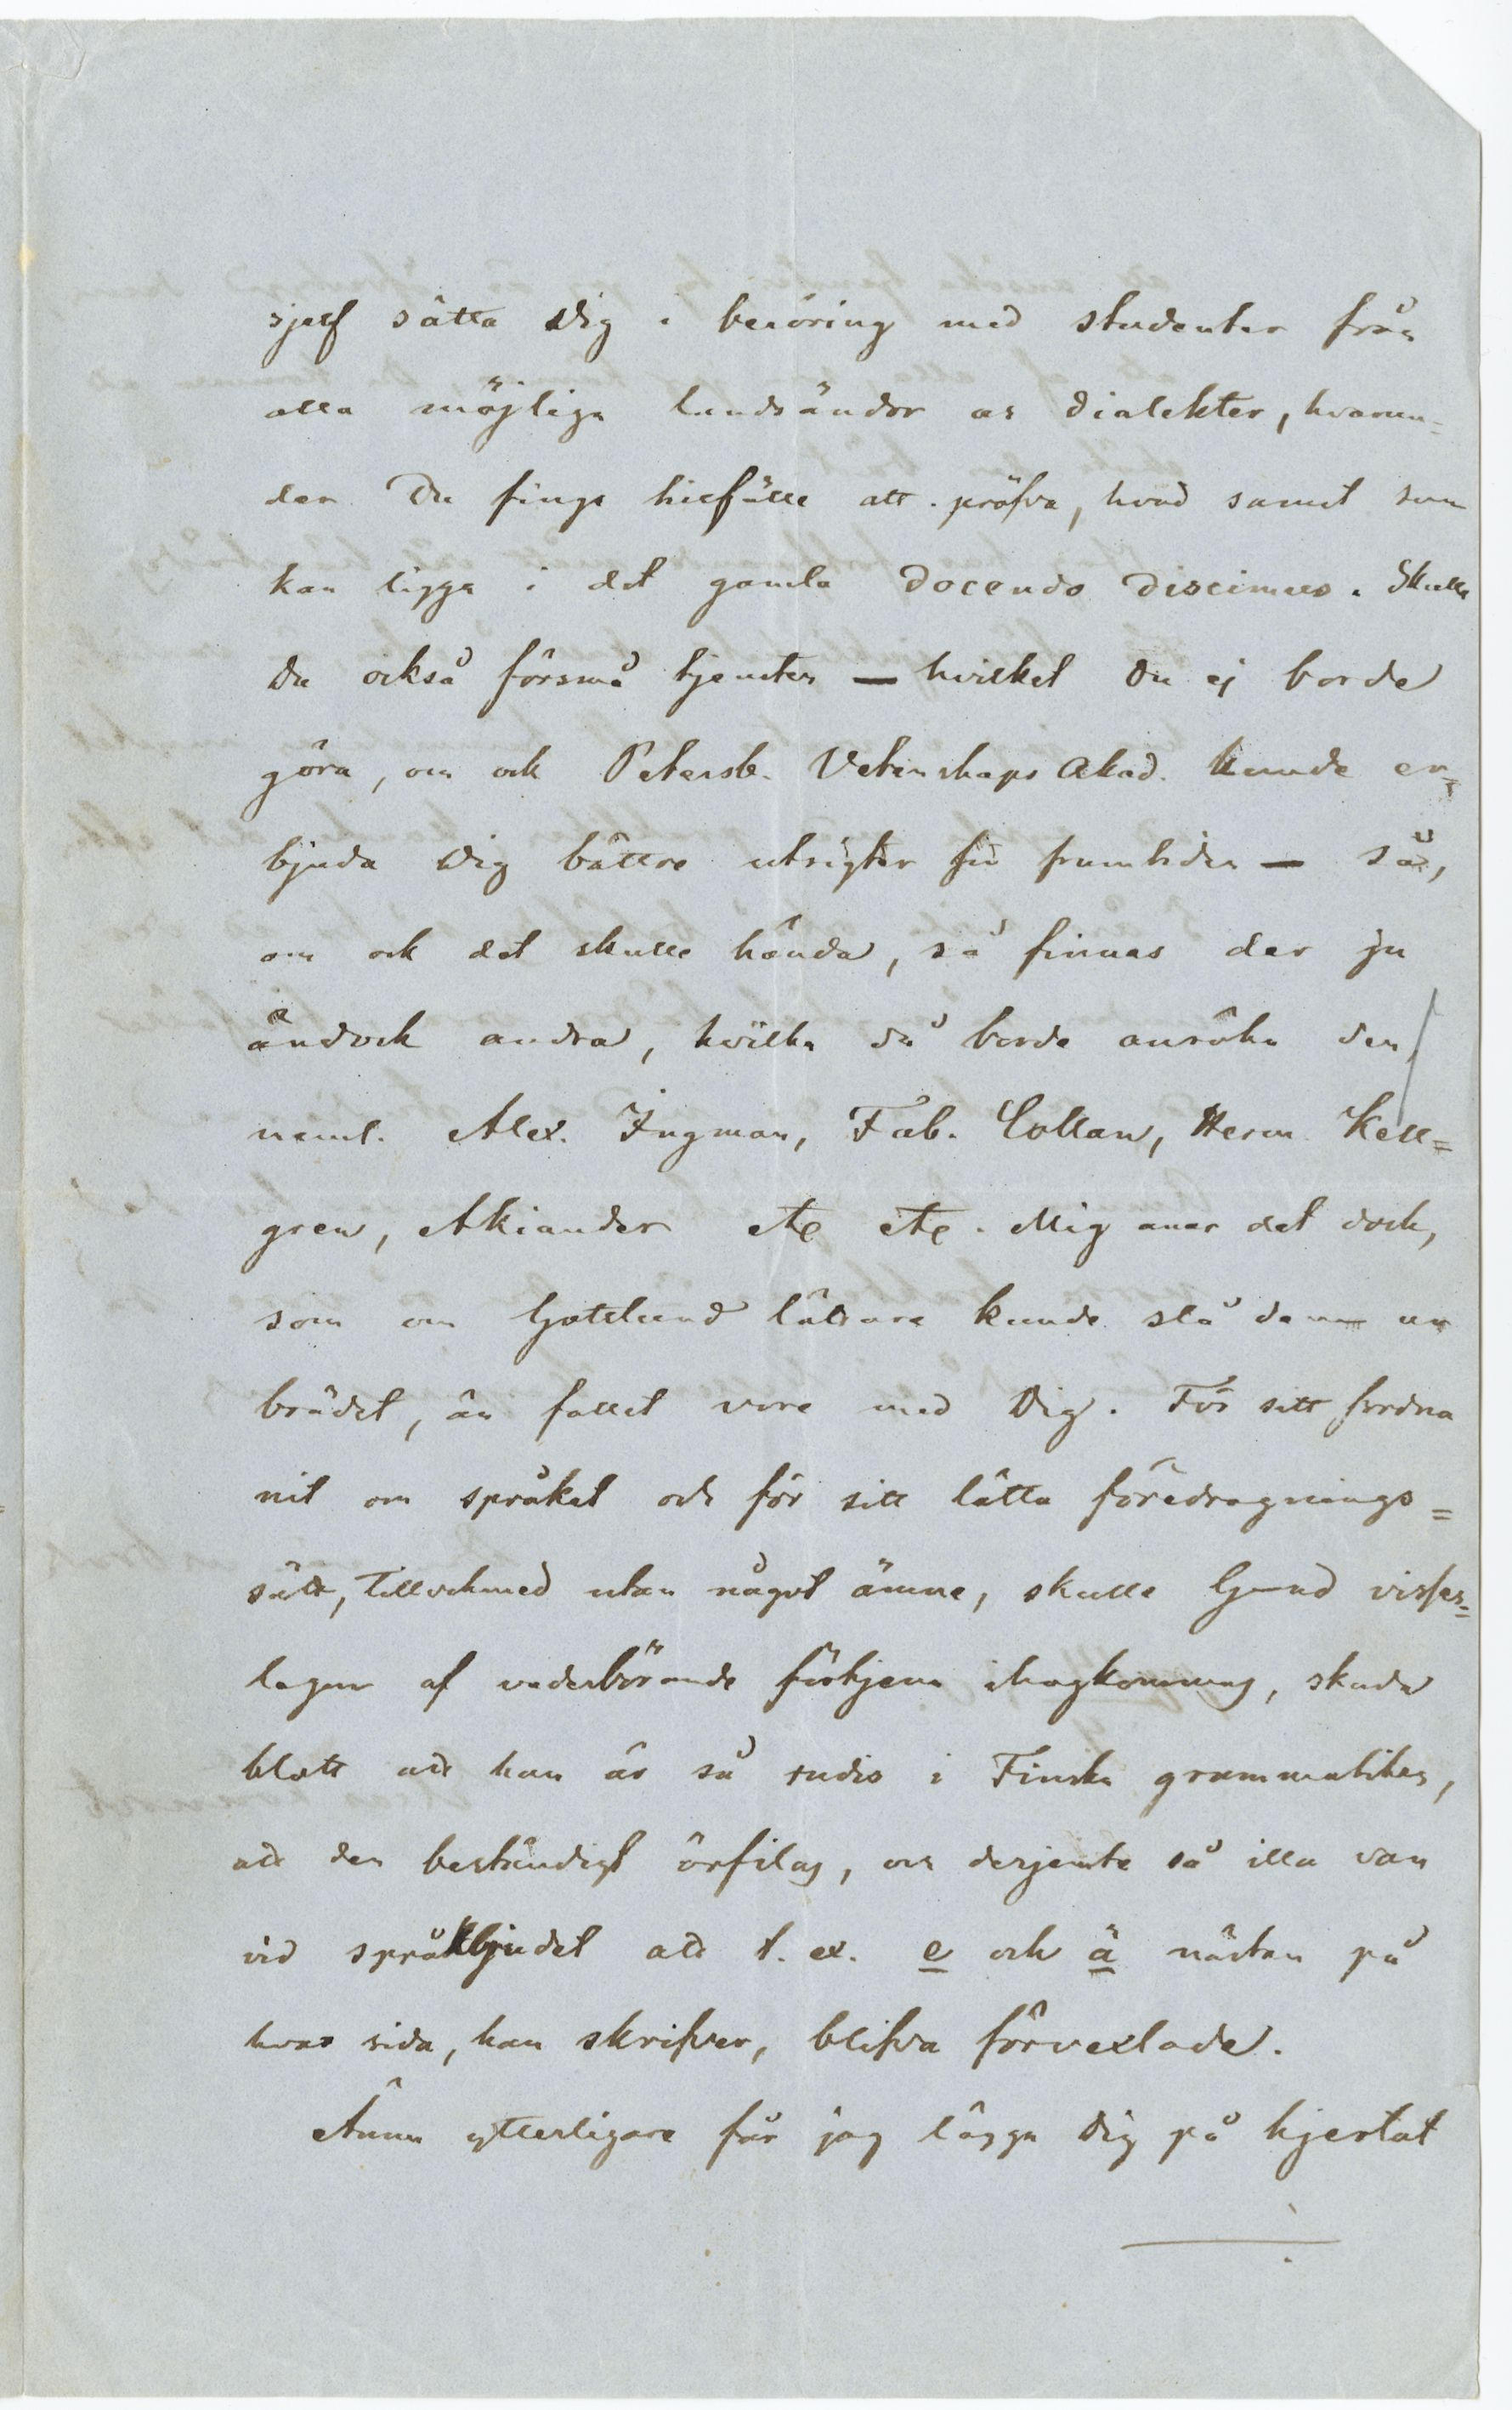 sjelf sätta Dig i beröring med studenter från
alla möjliga landsändor och dialekter, hvarun=
der Du finge tillfälle att pröfva, hvad sannt som
kan ligga i det gamla docendo discimus. Skulle
Du också försmå tjensten — hvilket Du ej borde
göra, om ock Petersb. Vetenskaps Akad. kunde er=
bjuda Dig bättre utsigter för framtiden — så,
om ock det skulle hända, så finnas der ju
ändock andra, hvilka då borde ansöka den,
neml. Alex. Ingman, Fab. Collan, Herm. Kell=
gren, Akiander etc etc. Mig anar det dock,
som om Gotlund lättare kunde slå dem ur
brädet, än fallet vore med Dig. För sitt fordna
nit om språket och för sitt lätta föredragnings=
sätt, tillochmed utan något ämne, skulle G—nd visser=
ligen af vederbörande förtjena ihogkomning, skada
blott att han är så rudis i Finska grammatiken,
att den beständigt örfilas, och derjemte så illa van
vid språkljudet att t. ex. e och ä nästan på
hvar sida, han skrifver, blifva förvexlade.
Ännu ytterligare får jag lägga Dig på hjertat